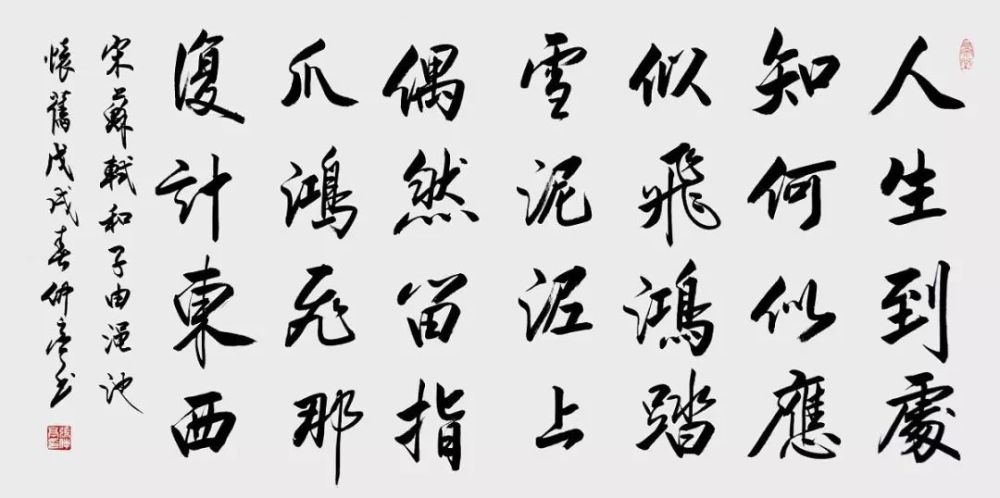 人生到處
知何似應
似飛鴻踏
雪泥泥上
偶然留指
爪鴻飛那
復計東西
宋蘇軾和子由澠池
懷舊戊戌春仲亭书